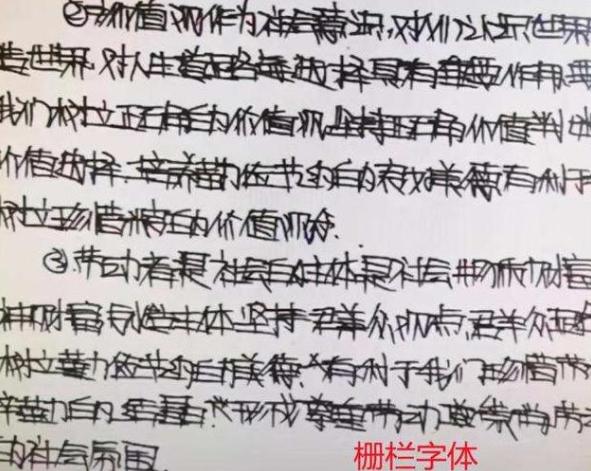 ②价值观作为社会意识,对人们认识世界
造世界,对人生道路的选择具有重要作用,要
我们树立正确的价值观,坚持正确价值判断
价值选择,培养勤俭节约的良好美德有利于
树立珍惜粮食的价值观念.
③劳动者是社会的主体,是社会物质财富
神财富创造主体,坚持群众观点,群众路线
树立勤力俭节约的美德,有利于我们珍惜劳
辛勤力的结晶,形成尊重劳动,崇尚劳动
的社会氛围.
栅栏字体